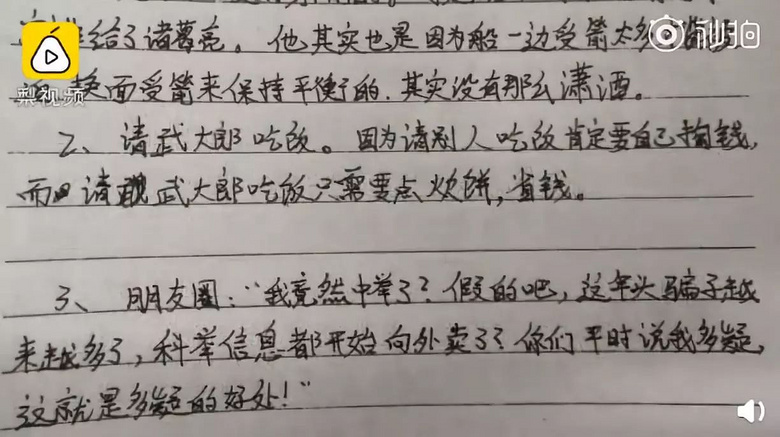 给了诸葛亮。他其实也是因为船一边受箭太多
换面受箭来保持平衡的.其实没有那么潇洒。
2、请武大郎吃饭。因为请别人吃饭肯定要自己掏钱,
而请武大郎吃饭只需要点炊饼,省钱。
3、朋友圈:“我竟然中举了?假的吧,这年头骗子越
来越多了,科举信息都开始向外卖了?你们平时说我多疑,
这就是多疑的好处!”
梨视频
秒拍